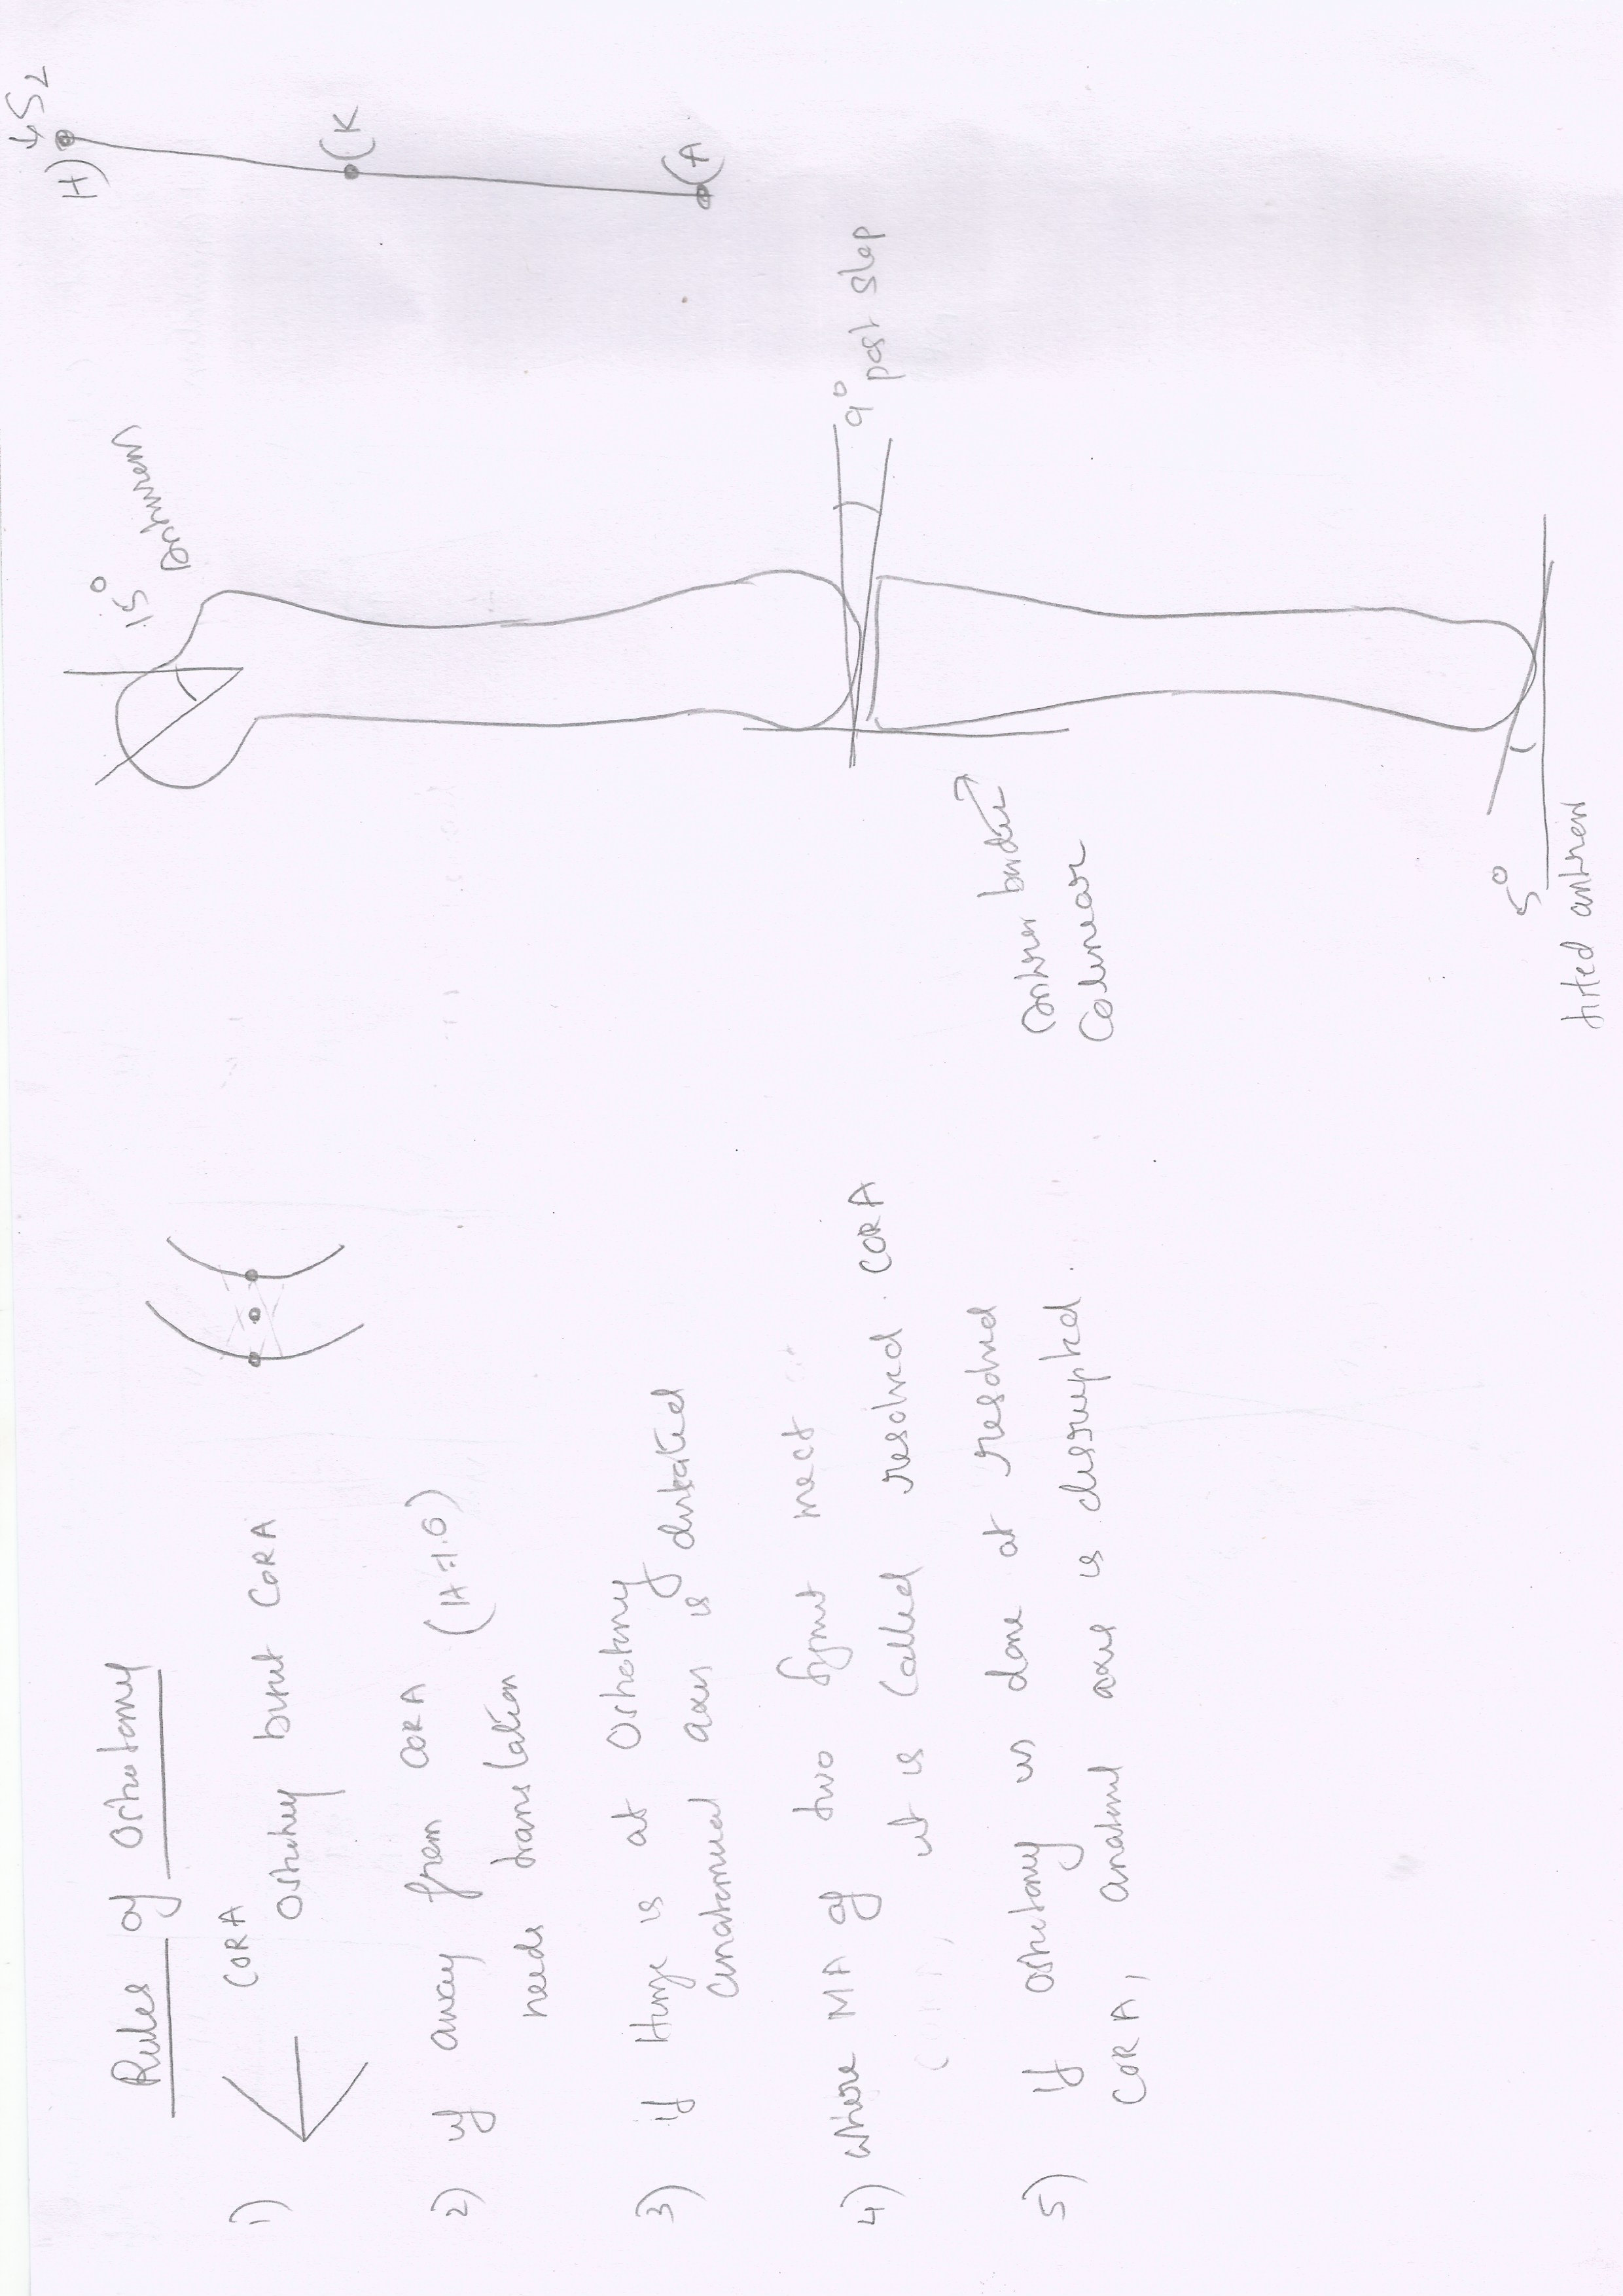 Rules of Osteotomy
1) CORA
Osteotomy bisect CORA
2) if away from CORA
needs translation
3) if Hinge is at Osteotomy
anatomical axis is
4) where MA of two meet
it is called resolved CORA
5) If osteotomy is done at resolved
CORA, anatomical axis is disrupted.
15°
9° post slop
Anterior border
Colinear
5°
tilted anterior
↓ S2
H)
(K
(A